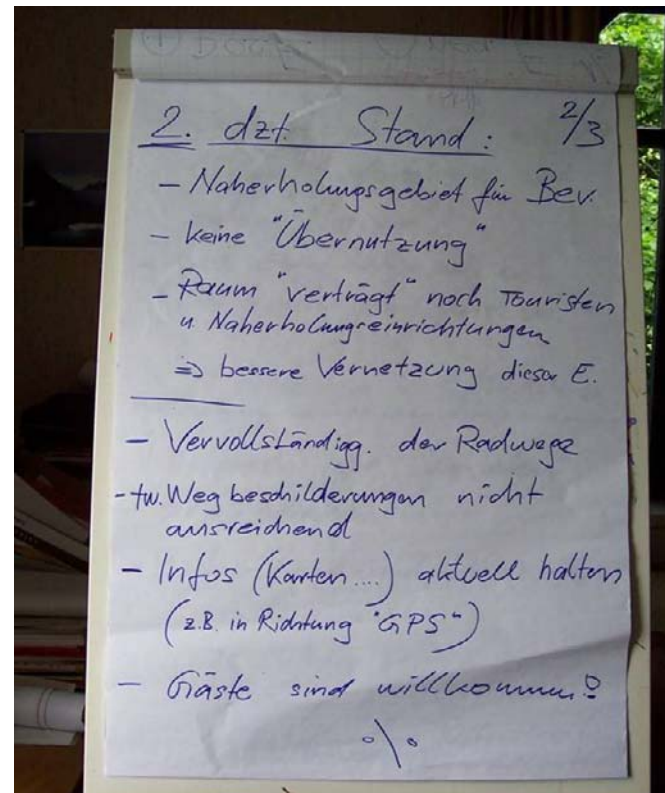 2. dzt. Stand: 2/3
- Naherholungsgebiet für Bev.
- keine "Übernutzung"
- Raum "verträgt" noch Touristen
u. Naherholungseinrichtungen
=> bessere Vernetzung dieser E.
- Vervollständigg. der Radwege
- tw. Wegbeschilderungen nicht
ausreichend
- Infos (Karten....) aktuell halten
(z.B. in Richtung "GPS")
- Gäste sind willkommen!